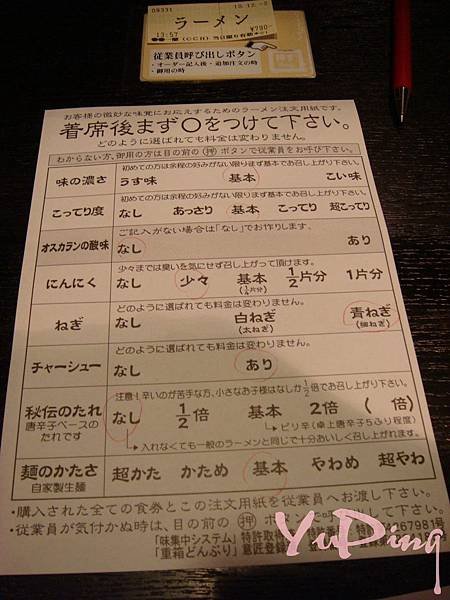 09331
10.12.-8
ラーメン
13:57
¥790-
従業員呼び出しボタン
・オーダー記入後・追加注文の時
・御用の時
お客様の微妙な味覚にお応えするためのラーメン注文用紙です。
着席後まず〇をつけて下さい。
どのように選ばれても料金は変わりません。
わからない方、御用の方は目の前の㊞ボタンで従業員をお呼び下さい。
味の濃さ
初めての方は余程の好みがない限りまず基本でお召し上がり下さい。
うす味 基本 こい味
こってり度
初めての方は余程の好みがない限りまず基本でお召し上がり下さい。
なし あっさり 基本 こってり 超こってり
オスカランの酸味
ご記入がない場合は「なし」でお作りします。
なし あり
にんにく
少々までは臭いを気にせず召し上がって頂けます。
なし 少々 基本 1/2片分 1片分
(1/4片分)
ねぎ
どのように選ばれても料金は変わりません。
なし 白ねぎ 青ねぎ
(太ねぎ) (細ねぎ)
チャーシュー
どのように選ばれても料金は変わりません。
なし あり
秘伝のたれ
唐辛子ベースの
たれです
注意!辛いのが苦手な方、小さなお子様はなしか1/2倍でお召し上がり下さい。
なし 1/2倍 基本 2倍 ( 倍)
ピリ辛(卓上唐辛子5ふり程度)
入れなくても一般のラーメンと同じで十分おいしく召し上がれます。
麺のかたさ
自家製生麺
超かた かため 基本 やわめ 超やわ
・購入された全ての食券とこの注文用紙を従業員へお渡し下さい。
・従業員が気付かぬ時は、目の前の
「味集中システム」特許取得
「重箱どんぶり」意匠登録
67981号
YuPing